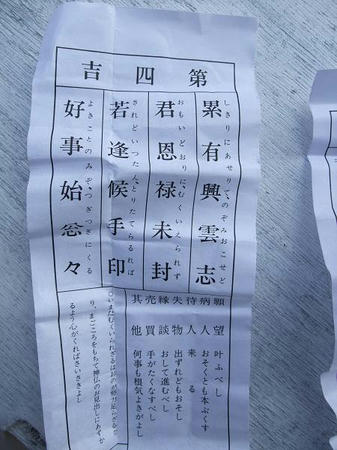 第四吉
しきりにあせりて、のぞみおこせど
累有興雲志
おもいどおりに、むくいえられず
君恩禄未封
されどいつたん、とりたてらるれば
若逢候手印
よきことのみぞ、つぎつぎにくる
好事始忩々
願望 叶ふべし
病人 おそくとも本ぶくす
待人 来る
失物 出ずれどもおそし
縁談 おして進むべし
売買 手がたくなすべし
其他 何事も根気よきがよし
いまだむくいられざるは
り、まごころをもちて神仏のお見出しにあずか
るよう心がくればさいさきよし